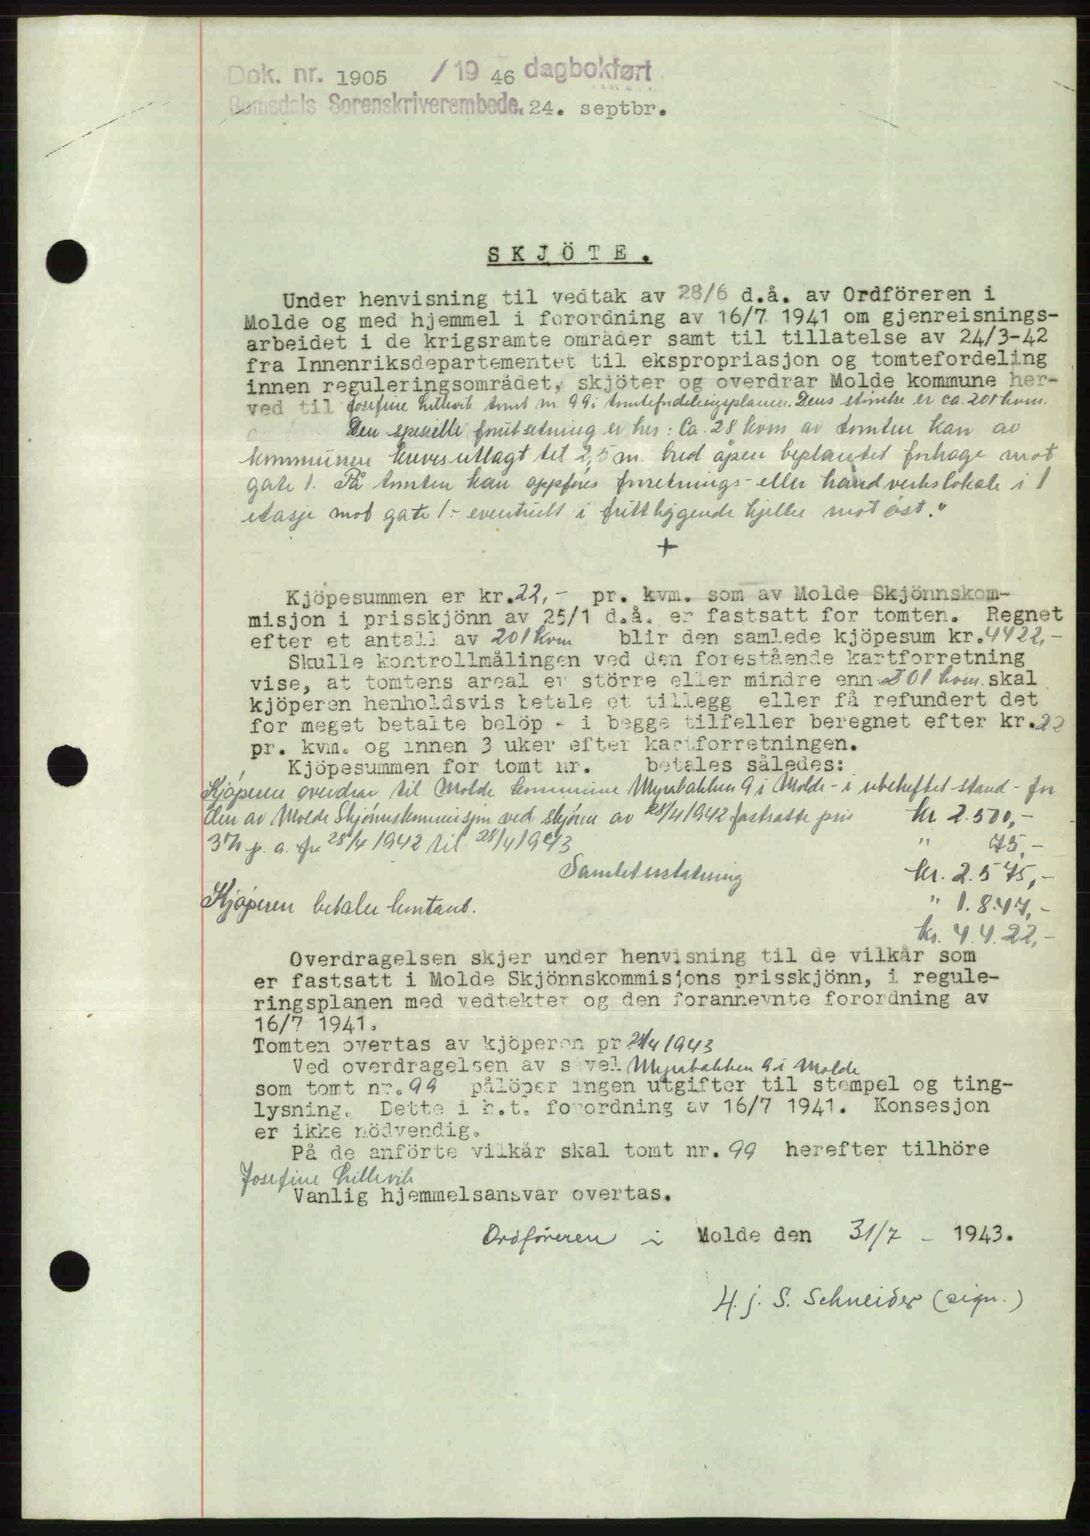 Dok. nr. 1905 /19 46 dagbokført
Romsdals Sorenskriverembede. 24. septbr.
SKJÖTE.
Under henvisning til vedtak av 28/6 d.å. av Ordföreren i
Molde og med hjemmel i forordning av 16/7 1941 om gjenreisnings-
arbeidet i de krigsramte områder samt til tillatelse av 24/3-42
fra Innenriksdepartementet til ekspropriasjon og tomtefordeling
innen reguleringsområdet, skjöter og overdrar Molde kommune her-
ved til Josefine Lillevik tomt nr. 99 i tomtefordelingsplanen. Dens størrelse er ca. 201 kvm.
Den spesielle forutsetning er her: Ca. 28 kvm av tomten kan av
kommunen kreves utlagt til 2,5 m. bred åpen beplantet forhage mot
gate 1. På tomten kan oppføres forretnings- eller håndverkslokale i 1
etasje mot gate 1 - eventuelt i frittliggende kjeller mot øst."
+
Kjöpesummen er kr. 22,- pr. kvm. som av Molde Skjönnskom-
misjon i prisskjönn av 25/1 d.å. er fastsatt for tomten. Regnet
efter et antall av 201 kvm blir den samlede kjöpesum kr. 4422,-
Skulle kontrollmålingen ved den forestående kartforretning
vise, at tomtens areal er större eller mindre enn 201 kvm. skal
kjöperen henholdsvis betale et tillegg eller få refundert det
for meget betalte belöp - i begge tilfeller beregnet efter kr. 22
pr. kvm. og innen 3 uker efter kartforretningen.
Kjöpesummen for tomt nr. betales således:
Kjøperen overdrar til Molde kommune Myrabakken 9 i Molde - i ubeheftet stand - for
den av Molde Skjønnskommisjon ved skjønn av 28/4 1942 fastsatte pris kr. 2.500,-
3% p.a. fra 28/4 1942 til 28/4 1943 " 75,-
Samlet erstatning kr. 2.575,-
Kjøperen betaler kontant. " 1.847,-
kr. 4.422,-
Overdragelsen skjer under henvisning til de vilkår som
er fastsatt i Molde Skjönnskommisjons prisskjönn, i regule-
ringsplanen med vedtekter og den forannevnte forordning av
16/7 1941.
Tomten overtas av kjöperen pr 28/4 1943
Ved overdragelsen av såvel Myrabakken 9 i Molde
som tomt nr. 99 pålöper ingen utgifter til stempel og ting-
lysning. Dette i h.t. forordning av 16/7 1941. Konsesjon
er ikke nödvendig.
På de anförte vilkår skal tomt nr. 99 herefter tilhöre
Josefine Lillevik
Vanlig hjemmelsansvar overtas.
Ordføreren i Molde den 31/7 - 1943.
H. j. S. Schneider (sign.)